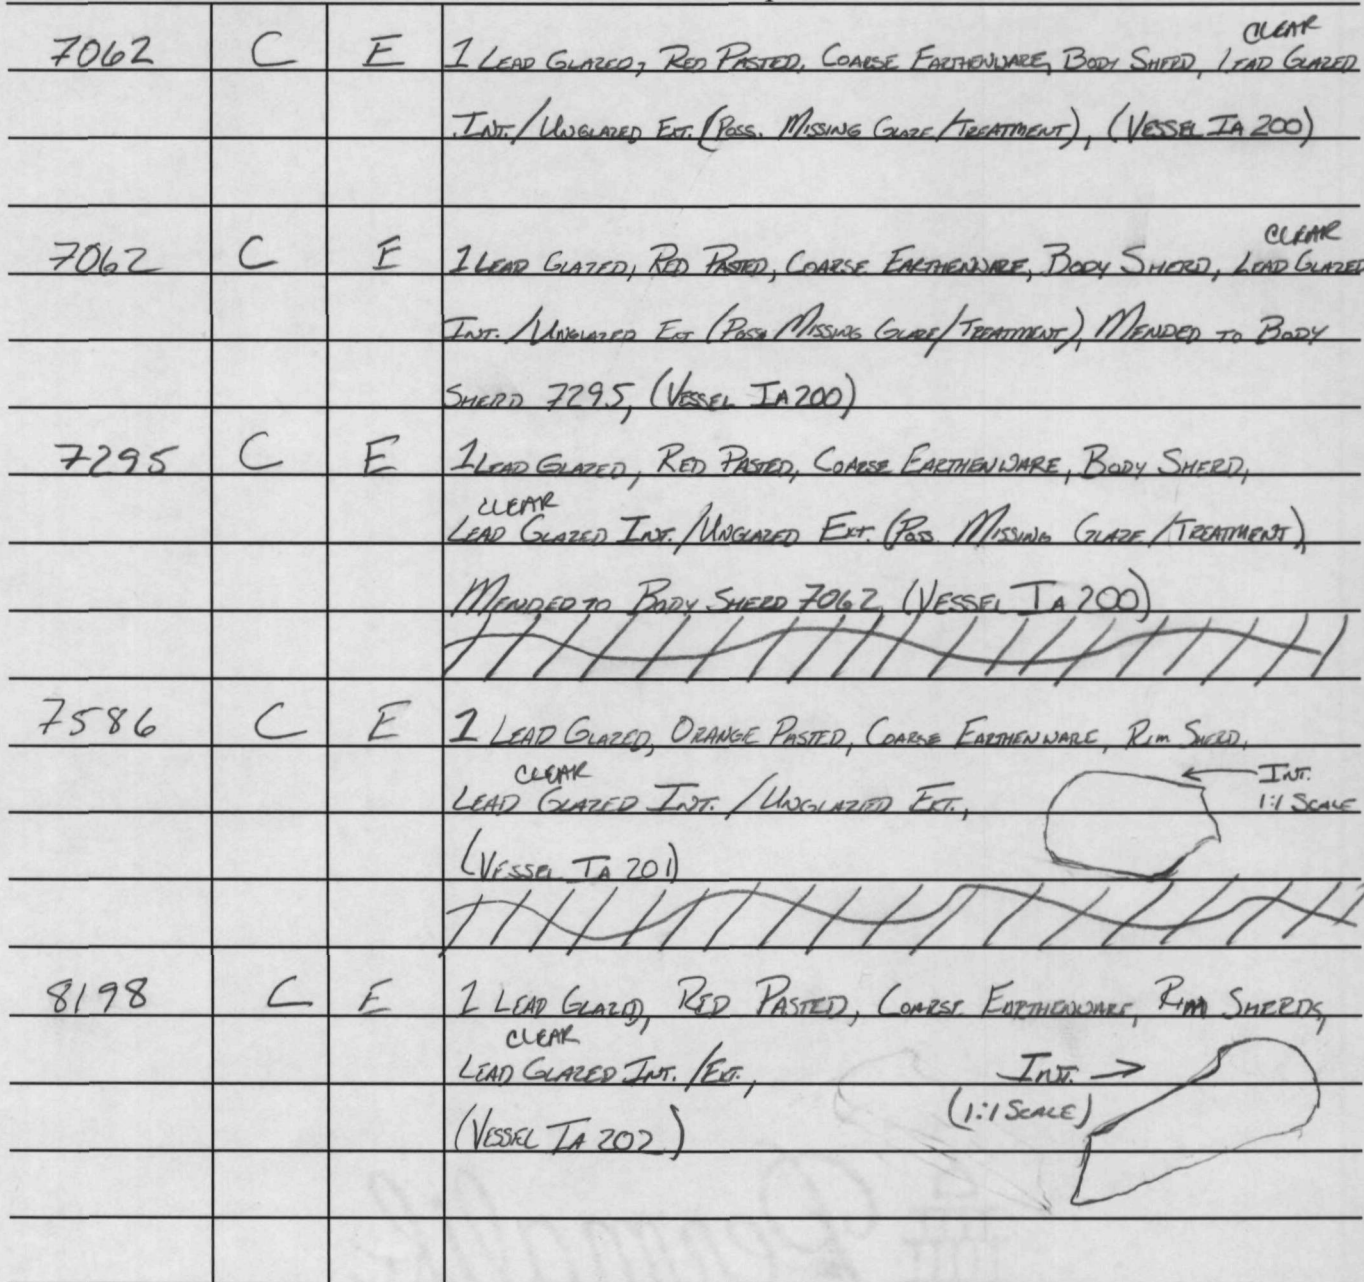 CLEAR
7062 C E 1 LEAD GLAZED, RED PASTED, COARSE EARTHENWARE, BODY SHERD, LEAD GLAZED
INT./UNGLAZED EXT. (POSS. MISSING GLAZE/TREATMENT), (VESSEL IA 200)
CLEAR
7062 C E 1 LEAD GLAZED, RED PASTED, COARSE EARTHENWARE, BODY SHERD, LEAD GLAZED
INT./UNGLAZED EXT (POSS MISSING GLAZE/TREATMENT), MENDED TO BODY
SHERD 7295, (VESSEL IA 200)
7295 C E 1 LEAD GLAZED, RED PASTED, COARSE EARTHENWARE, BODY SHERD,
CLEAR
LEAD GLAZED INT./UNGLAZED EXT. (POSS. MISSING GLAZE/TREATMENT),
MENDED TO BODY SHERD 7062, (VESSEL IA 200)
7586 C E 1 LEAD GLAZED, ORANGE PASTED, COARSE EARTHENWARE, RIM SHERD,
CLEAR
LEAD GLAZED INT./UNGLAZED EXT.,
INT.
1:1 SCALE
(VESSEL IA 201)
8198 C E 1 LEAD GLAZED, RED PASTED, COARSE EARTHENWARE, RIM SHERDS,
CLEAR
LEAD GLAZED INT./EXT.,
INT.
(1:1 SCALE)
(VESSEL IA 202)